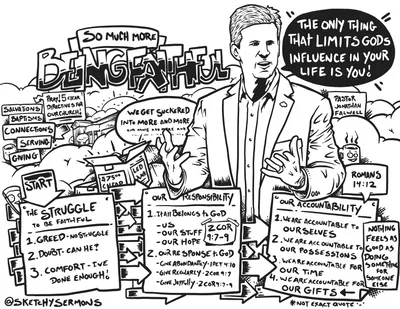 SO MUCH MORE
BEING FAITHFUL
"THE ONLY THING
THAT LIMITS GODS
INFLUENCE IN YOUR
LIFE IS YOU!"
PASTOR
JONATHAN
FALWELL
ROMANS
14:12
SALVATIONS
BAPTISMS
CONNECTIONS
SERVING
GIVING
PRAY! 5 CLEAR
DIRECTIVES FOR
OUR CHURCH!
WE GET SUCKERED
INTO MORE AND MORE
AND MORE AND MORE AND
START
THE STRUGGLE
TO BE FAITHFUL
1. GREED - NO STRUGGLE
2. DOUBT - CAN HE?
3. COMFORT - I'VE
DONE ENOUGH!
OUR RESPONSIBILITY
1. IT ALL BELONGS TO GOD
- US
- OUR STUFF
- OUR HOPE
2 COR
9:7-9
2. OUR RESPONSE TO GOD
- GIVE ABUNDANTLY - 1 PET 4:10
- GIVE REGULARLY - 2 COR 9:7
- GIVE JOYFULLY - 2 COR 9:7-9
OUR ACCOUNTABILITY
1. WE ARE ACCOUNTABLE TO
OURSELVES
2. WE ARE ACCOUNTABLE TO
OUR POSSESSIONS
3. WE ARE ACCOUNTABLE FOR
OUR TIME
4. WE ARE ACCOUNTABLE FOR
OUR GIFTS
NOTHING
FEELS AS
GOOD AS
DOING
SOMETHING
FOR
SOMEONE
ELSE
*NOT EXACT QUOTE
@SKETCHYSERMONS